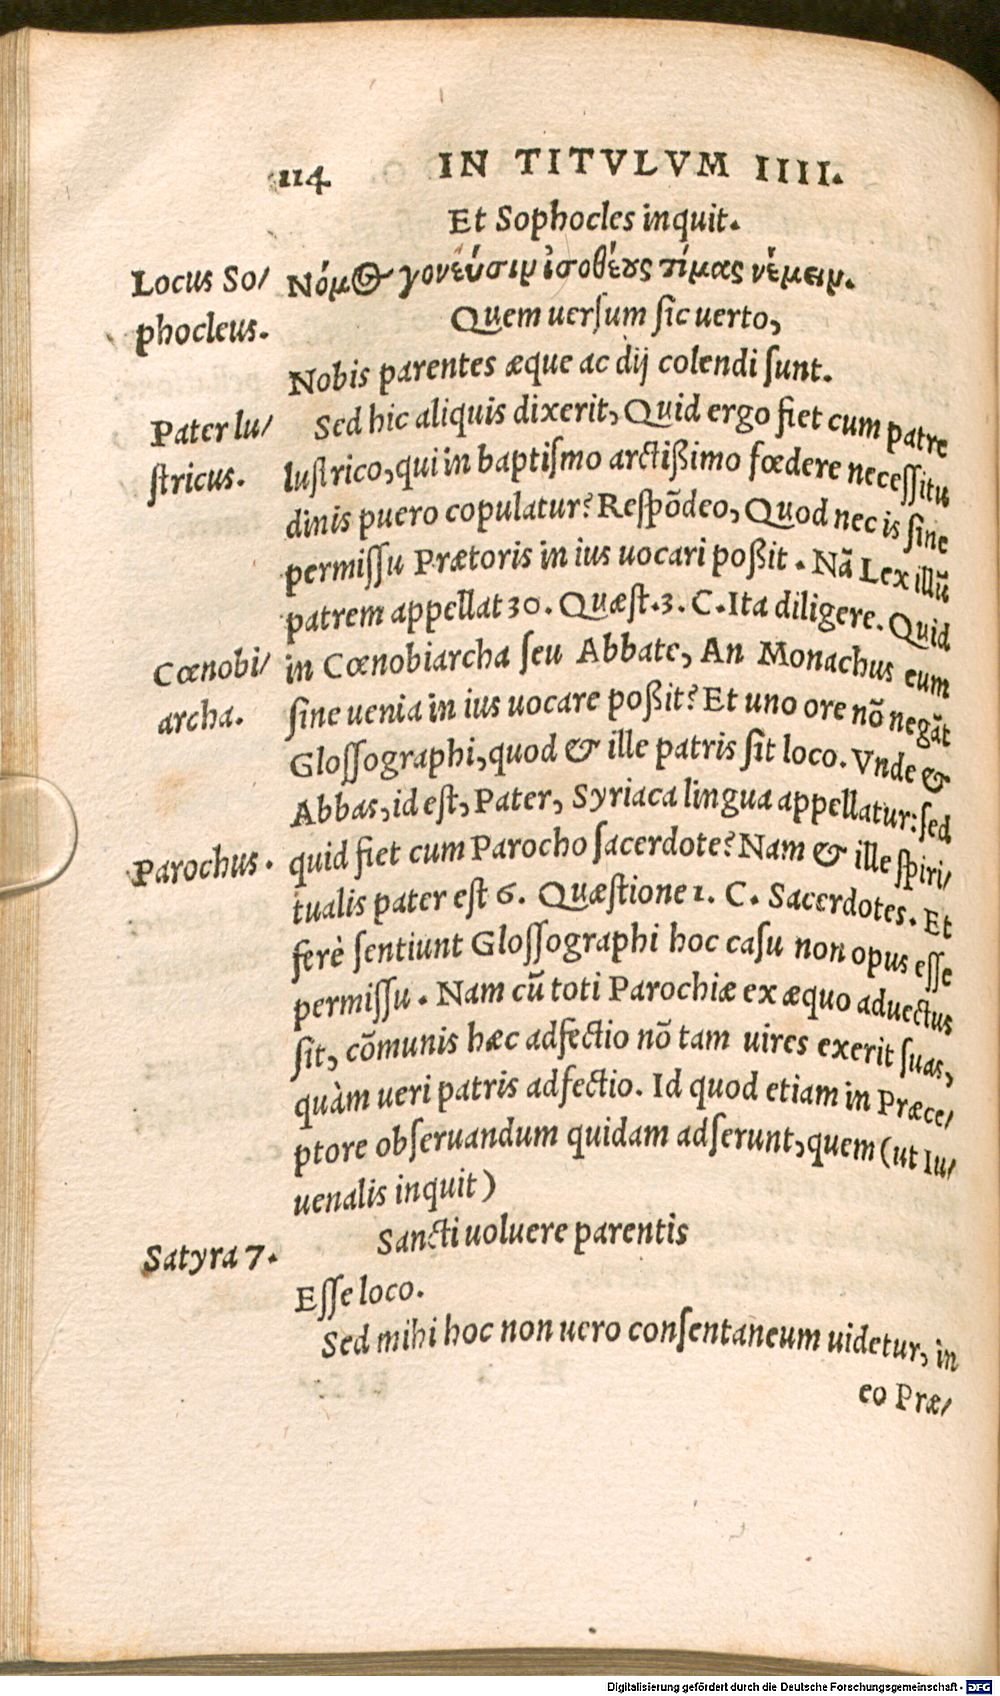 114 IN TITVLVM IIII.
Et Sophocles inquit.
Locus So/
phocleus.
Νόμος γονεῦσιν ἰσοθέους τίμας νέμειν.
Quem uersum sic uerto,
Nobis parentes æque ac dij colendi sunt.
Pater lu/
stricus.
Sed hic aliquis dixerit, Quid ergo fiet cum patre
lustrico, qui in baptismo arctißimo fœdere necessitu
dinis puero copulatur? Respõdeo, Quod nec is sine
permissu Prætoris in ius uocari poßit. Nã Lex illũ
patrem appellat 30. Quæst. 3. C. Ita diligere. Quid
Cœnobi/
archa.
in Cœnobiarcha seu Abbate, An Monachus eum
sine uenia in ius uocare poßit? Et uno ore nõ negãt
Glossographi, quod & ille patris sit loco. Vnde &
Abbas, id est, Pater, Syriaca lingua appellatur: sed
Parochus.
quid fiet cum Parocho sacerdote? Nam & ille spiri/
tualis pater est 6. Quæstione 1. C. Sacerdotes. Et
ferè sentiunt Glossographi hoc casu non opus esse
permissu. Nam cũ toti Parochiæ ex æquo aduectus
sit, cõmunis hæc adfectio nõ tam uires exerit suas,
quàm ueri patris adfectio. Id quod etiam in Præce/
ptore obseruandum quidam adserunt, quem (ut Iu/
uenalis inquit)
Satyra 7.
Sancti uoluere parentis
Esse loco.
Sed mihi hoc non uero consentaneum uidetur, in
eo Præ/
Digitalisierung gefördert durch die Deutsche Forschungsgemeinschaft - DFG